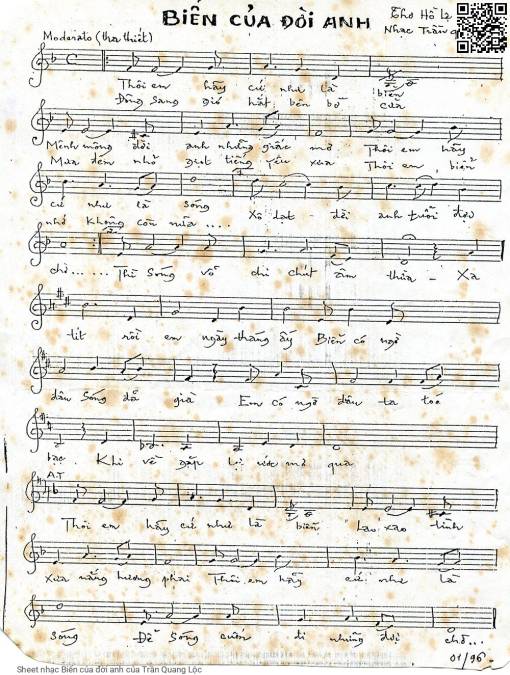 BIỂN CỦA ĐỜI ANH
Thơ Hồ
Moderato (tha thiết)
Nhạc Trần
Thôi em hãy cứ như là biển
Đông sang gió hắt bên bờ cửa
Mênh mông đời anh những giấc mơ Thôi em hãy
Mưa đêm nhỏ giọt tiếng yêu xưa Thôi em, biển
cứ như là sóng Xô dạt dài anh tuổi đợi
nhớ không còn nữa....
chờ...... Thì sóng vỗ chi chút âm thừa - Xa
tít rồi em ngày tháng ấy Biển có ngờ
đâu sóng đã già Em có ngờ đâu ta toc
bạc. Khi về gặp lại ước mơ qua
A.T
Thôi em hãy cứ như là biển Lao xao tình
xưa nắng hương phai Thôi em hãy cứ như là
sóng Để sóng cuốn đi những đợi chờ...
01/96
Sheet nhạc Biển của đời anh của Trần Quang Lộc